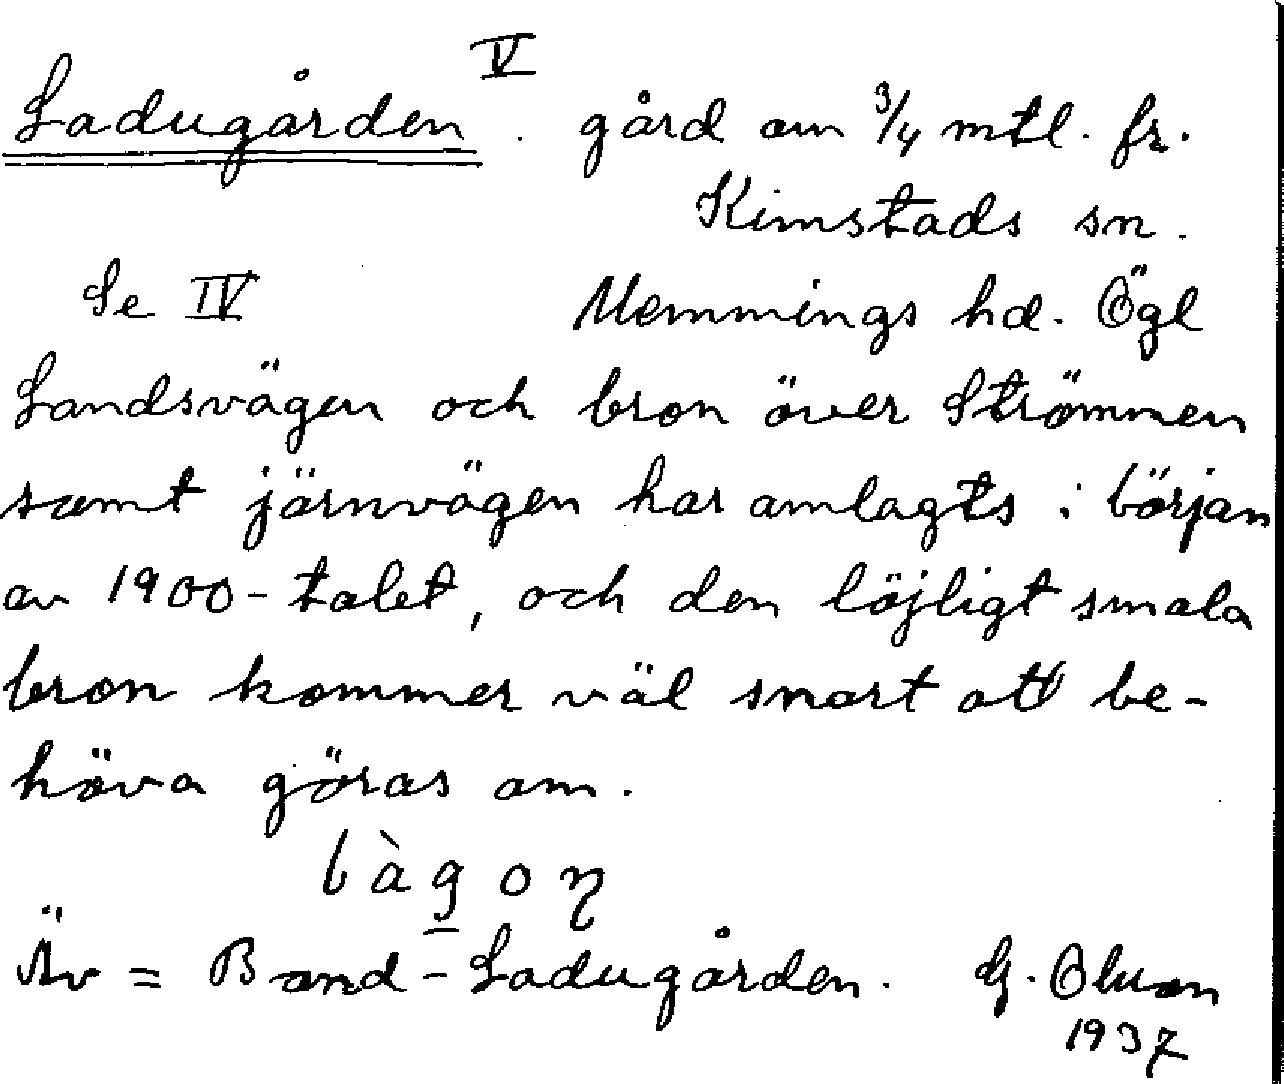 Ladugården V. gård om 3/4 mtl. fr.
Kimstads sn.
Se IV Memmings hd. Ögl
Landsvägen och bron över Strömmen
samt järnvägen har anlagts i början
av 1900-talet, och den löjligt smala
bron kommer väl snart att be-
höva göras om.
làgon
Äv = Band-Ladugården. G.
1937